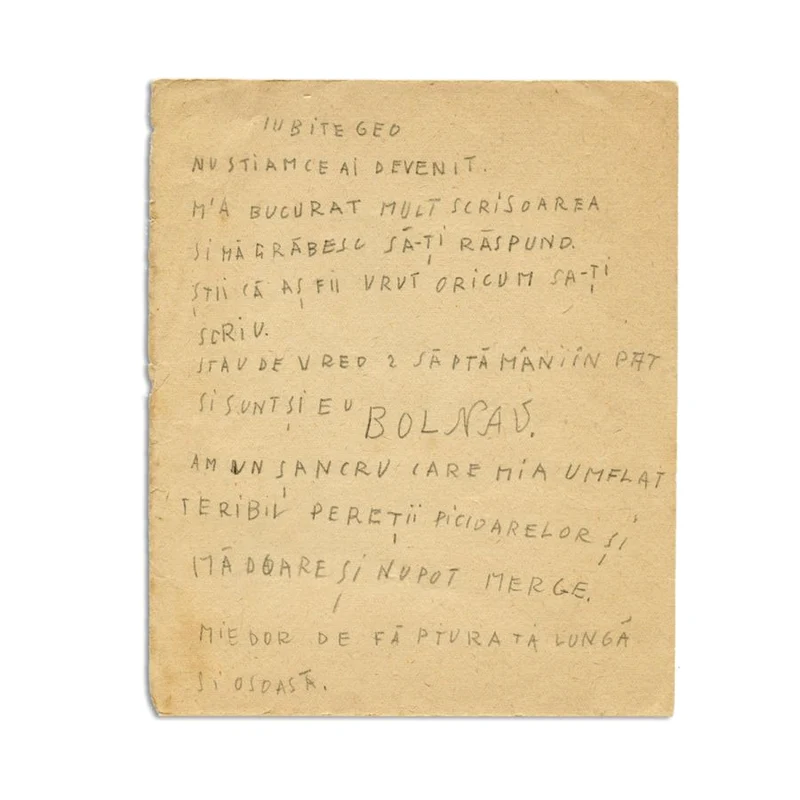 IUBITE GEO
NU STIAM CE AI DEVENIT.
M'A BUCURAT MULT SCRISOAREA
SI MĂ GRĂBESC SĂ-ȚI RĂSPUND.
ȘTII CĂ AȘ FII VRUT ORICUM SA-ȚI
SCRIU.
STAU DE VREO 2 SĂPTĂMÂNI ÎN PAT
SI SUNT ȘI EU BOLNAV.
AM UN ȘANCRU CARE MIA UMFLAT
TERIBIL PEREȚII PICIOARELOR ȘI
MĂ DOARE ȘI NU POT MERGE.
MIE DOR DE FĂPTURA TA LUNGĂ
SI OSOASĂ.